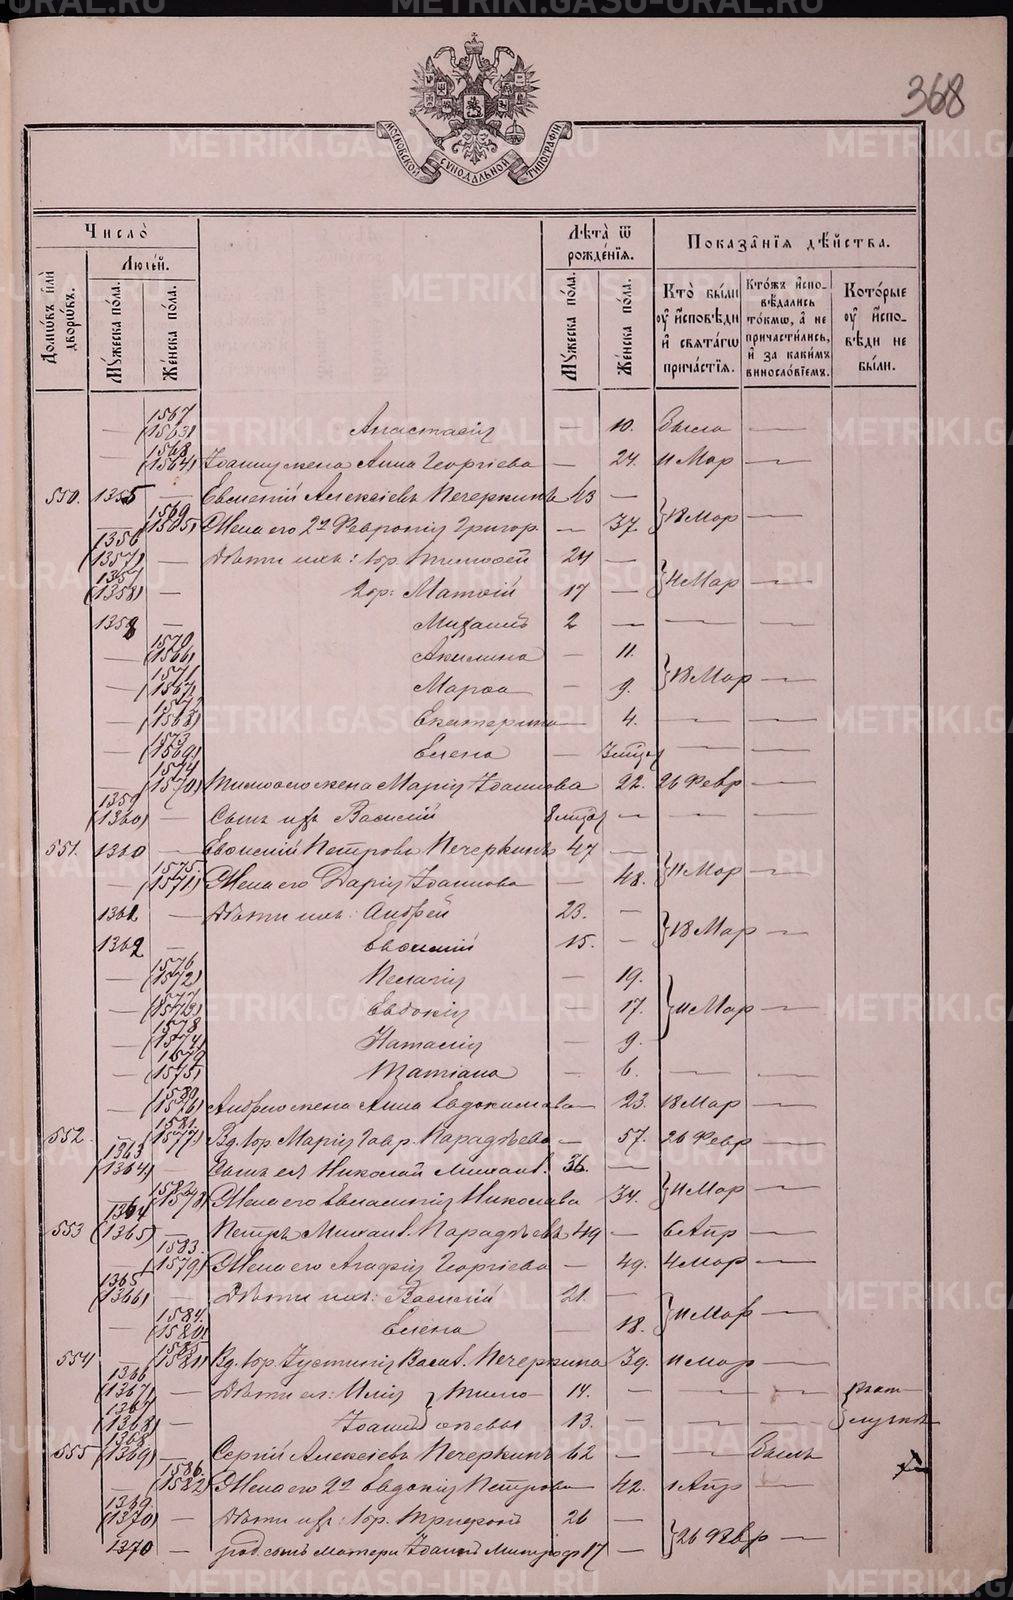 368
МОСКОВСКОЙ СѴНОДАЛЬНОЙ ТИПОГРАФІИ
Число̀
Лѣ́та ѿ рожде́нїя.
Показа̂нїя дѣ́йства.
Домѡ́въ и҆лѝ дворѡ́въ.
Люде́й.
Мꙋ́жеска по́ла.
Же́нска по́ла.
Мꙋ́жеска по́ла.
Же́нска по́ла.
Кто̀ бы́ли оу҆ и҆́сповѣди и҆ свята́гѡ прича́стїя.
Кто́жъ и҆спо-вѣ́дались то́кмѡ, а҆ не причасти́лись, и҆ за каки́мъ винослові́емъ.
Кото́рые оу҆ и҆́спо-вѣди не бы́ли.
— 1567 (1563) Анастасія — 10. Была —
— 1568 (1564) Іоанну жена Анна Георгіева — 24. 11 Мар —
550. 1355 — Евгеній Алексіевъ Печеркинъ 43 —
— 1569 (1565) Жена его 2я Февронія Григор. — 37. } 18 Мар —
1356 (1357) — Дѣти ихъ: 1 бр. Тимофей 24 —
1357 (1358) — 2 бр: Матфій 17 — } 4 Мар —
1358 — Михаилъ 2 — — —
— 1570 (1566) Акилина — 11.
— 1571 (1567) Марфа — 9. } 18 Мар —
— 1572 (1568) Екатерина — 4. — —
— 1573 (1569) Елена — — —
— 1574 (1570) Тимофею жена Марія Іоаннова 22. 26 Февр —
1359 (1360) — Сынъ ихъ Василій — — —
551. 1360 — Петровъ Печеркинъ 47 —
— 1575 (1571) Жена его Дарія Іоаннова — 48. } 11 Мар —
1361 — Дѣти ихъ: Андрей 23. —
1362 — 15. — } 18 Мар —
— 1576 (1572) Пелагія — 19.
— 1577 (1573) Евдокія — 17. } 11 Мар —
— 1578 (1574) Наталія — 9.
— 1579 (1575) Татіана — 6. — —
— 1580 (1576) Андрею жена Анна Евдокимова — 23. 18 Мар —
552. — 1581 (1577) Вд. Марія Гавр. Парадѣева — 57. 26 Февр —
1363 (1364) — Сынъ ея Николай Михаил. 36. —
— 1582 (1578) Жена его Николаева 34. } 11 Мар —
553 1364 (1365) — Петръ Михаил. Парадѣевъ 49 — 6 Апр —
— 1583. (1579) Жена его Агафія Георгіева — 49. 4 Мар —
1365 (1366) — Дѣти ихъ: Василій 21. —
— 1584 (1580) Елена — 18. } 11 Мар —
554 — 1585 (1581) Вд. Іустинія Васил. Печеркина 39. 11 Мар —
1366 (1367) — Дѣти ея: Илія } Тимо- 14. — — —
1367 (1368) — Іоаннъ } феевы 13. — — —
555 1368 (1369) — Сергій Алексіевъ Печеркинъ 62 — — Былъ
— 1586 (1582) Жена его 2я Евдокія Петрова — 42. 1 Апр —
1369 (1370) — Дѣти ихъ: 1 бр. Трифонъ 26 —
1370 — матери Іоаннъ Митроф 17 — } 26 Февр —